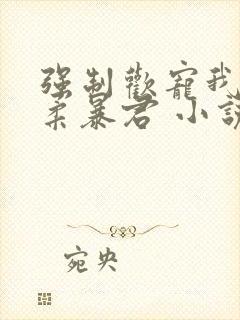 强制歡寵我
柔暴君 小說
宛央